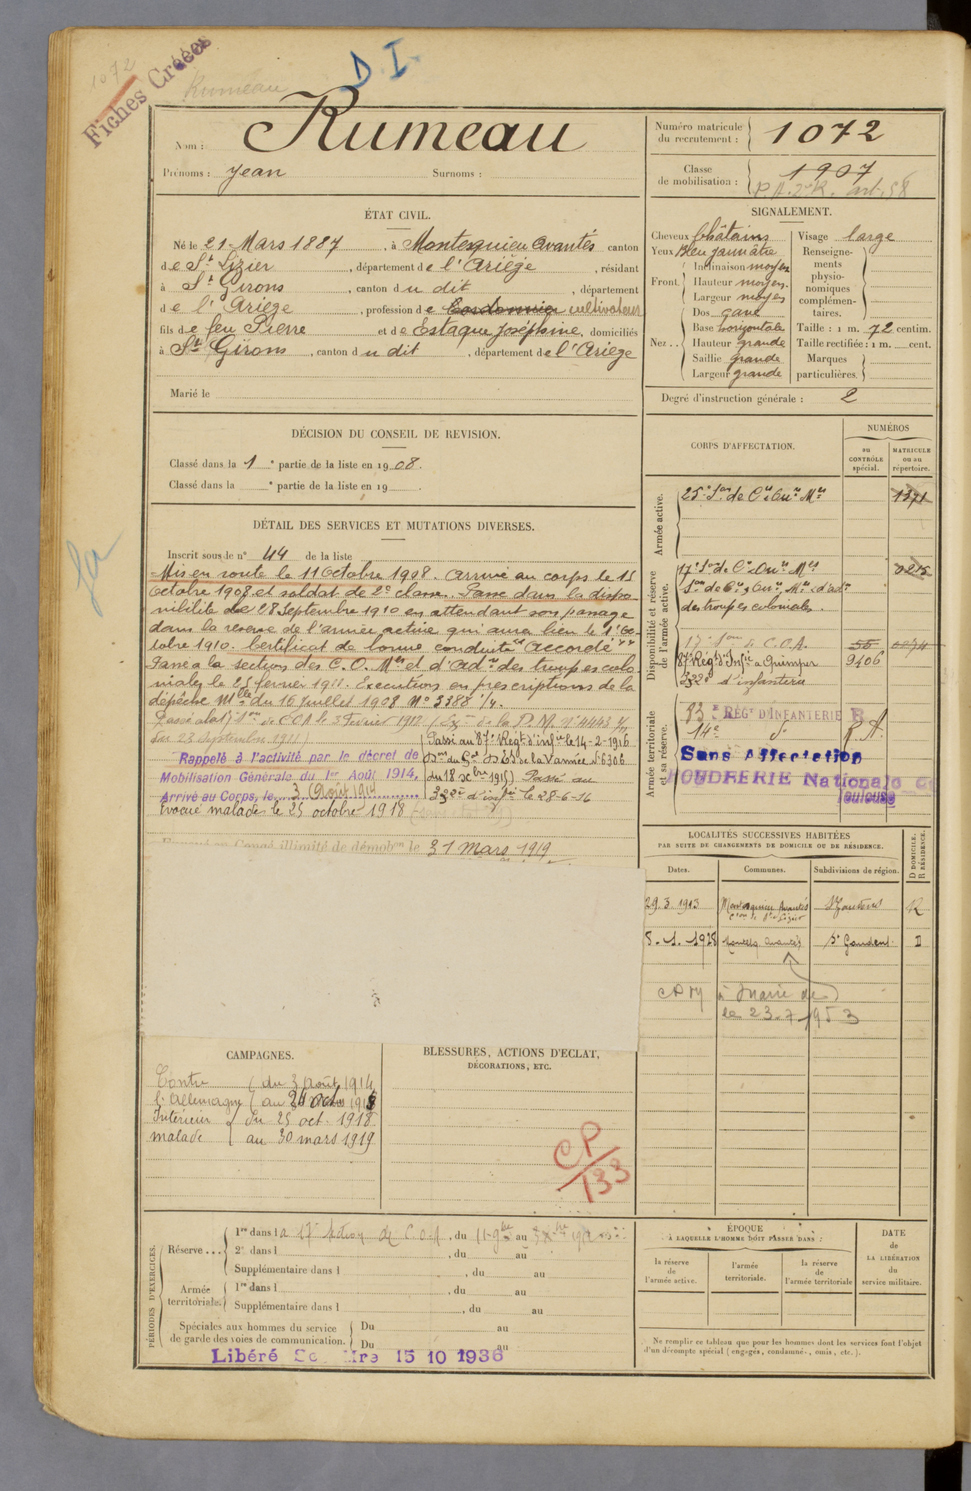 1072
Fiches Créées
Rumeau
D. I.
Nom : Rumeau
Prénoms : Jean Surnoms :
Numéro matricule du recrutement : 1072
Classe de mobilisation : 1907
ÉTAT CIVIL.
Né le 21 Mars 1887, à Montesquieu Avantès canton
de St Lizier, département de l'Ariège, résidant
à St Girons, canton du dit, département
de l'Ariège, profession de Cordonnier cultivateur
fils de feu Pierre et de Estaque Joséphine, domiciliés
à St Girons, canton du dit, département de l'Ariège
Marié le
SIGNALEMENT.
Cheveux Châtains
Yeux Bleu jaunâtre
Front. Inclinaison moyen
Hauteur moyen
Largeur moyen
Nez .. Dos cave
Base horizontale
Hauteur grande
Saillie grande
Largeur grande
Visage large
Renseignements physionomiques complémentaires.
Taille : 1 m. 72 centim.
Taille rectifiée : 1 m. cent.
Marques particulières.
Degré d'instruction générale : 2
DÉCISION DU CONSEIL DE REVISION.
Classé dans la 1e partie de la liste en 1908.
Classé dans la e partie de la liste en 19
DÉTAIL DES SERVICES ET MUTATIONS DIVERSES.
Inscrit sous le n° 44 de la liste
Mis en route le 11 Octobre 1908. Arrivé au corps le 15
Octobre 1908 et soldat de 2e classe. Passé dans la dispo-
nibilité le 28 Septembre 1910 en attendant son passage
dans la réserve de l'armée active qui aura lieu le 1er Oc-
tobre 1910. Certificat de bonne conduite Accordé
Passé à la section des C. O. Mres et d'Adon des troupes colo
niales le 25 février 1911. Exécution en prescriptions de la
dépêche Mlle du 16 juillet 1908 No 3388 1/4.
Passé à la 17e Son de C.O.A. le 3 Février 1912 (
du 23 septembre 1911)
Rappelé à l'activité par le décret de
Mobilisation Générale du 1er Août 1914.
Arrivé au Corps, le 3 Août 1914
Passé au 87e Régt d'infie le 14-2-1916
du 18 xbre 1915) Passé au
332e d'infie le 28-6-16
Évacué malade le 25 octobre 1918
en Congé illimité de démobon le 31 Mars 1919
CORPS D'AFFECTATION.
NUMÉROS
au CONTRÔLE spécial.
MATRICULE ou au répertoire.
Armée active.
25e Son de Cis Ouers Mres 1371
Disponibilité et réserve de l'armée active.
17e Son de Cis Ouers Mres
Son de Cis Ouers Mres d'adon
des troupes coloniales.
17e Son de C.O.A.
87e Régt d'Infie à Quimper 9406
332e d'infanterie
Armée territoriale et sa réserve.
83e RÉGt D'INFANTERIE
14e d°
Sans Affectation
POUDRERIE Nationale de
Toulouse
LOCALITÉS SUCCESSIVES HABITÉES
PAR SUITE DE CHANGEMENTS DE DOMICILE OU DE RÉSIDENCE.
Dates. Communes. Subdivisions de région. D DOMICILE. R RÉSIDENCE.
29.3.1913 Montesquieu Avantès St Gaudens R
Con de St Lizier
8.1.1928 Montesq. Avantès St Gaudens D
à Mairie de
le 23.7.1953
CAMPAGNES.
Contre l'Allemagne du 3 Août 1914
au 24 oct. 1918
Intérieur du 25 oct. 1918
malade au 30 mars 1919
BLESSURES, ACTIONS D'ÉCLAT,
DÉCORATIONS, ETC.
CP/133
PÉRIODES D'EXERCICES.
Réserve ... 1re dans la 17e section de C.O.A., du au
2e dans l , du au
Supplémentaire dans l , du au
Armée territoriale. 1re dans l , du au
Supplémentaire dans l , du au
Spéciales aux hommes du service de garde des voies de communication. Du au
Du au
Libéré 15 10 1936
ÉPOQUE
À LAQUELLE L'HOMME DOIT PASSER DANS :
la réserve de l'armée active.
l'armée territoriale.
la réserve de l'armée territoriale
DATE de LA LIBÉRATION du service militaire.
Ne remplir ce tableau que pour les hommes dont les services font l'objet
d'un décompte spécial (engagés, condamnés, omis, etc.).